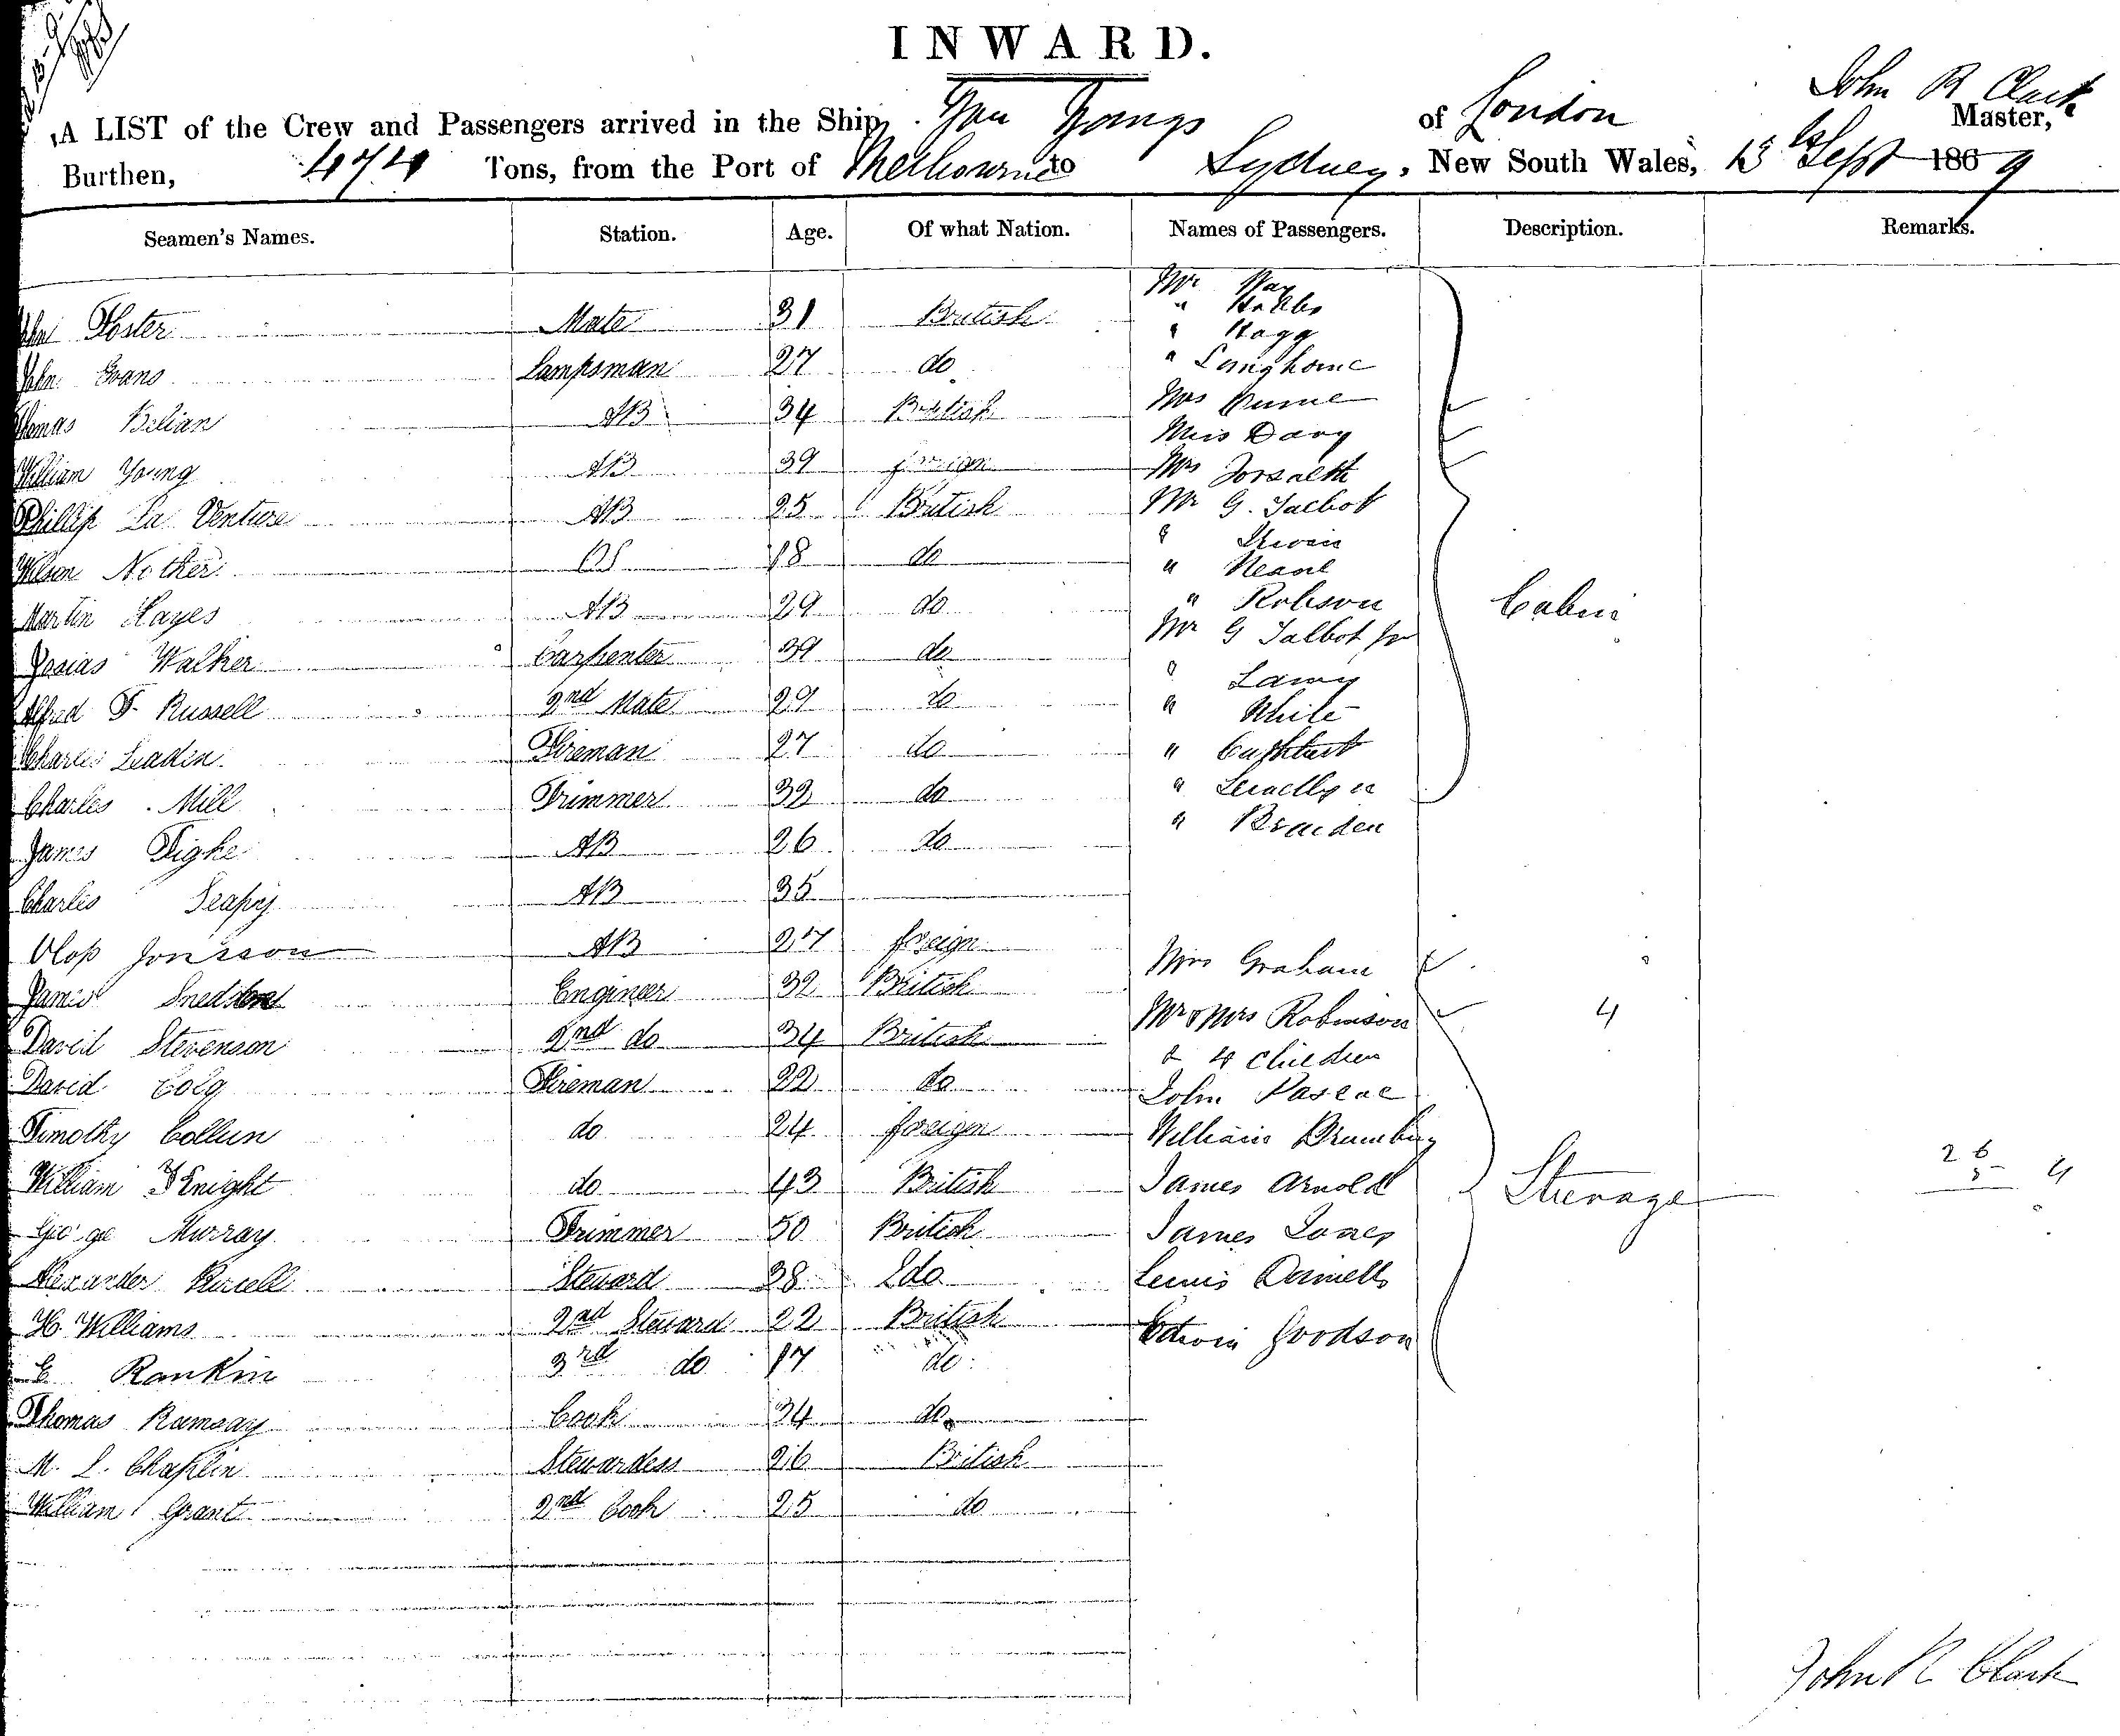 INWARD.
John R Clark
A LIST of the Crew and Passengers arrived in the Ship You Yangs of London Master,
Burthen, 474 Tons, from the Port of Melbourne to Sydney, New South Wales, 13th Sept 1869
Seamen's Names. Station. Age. Of what Nation. Names of Passengers. Description. Remarks.
Mr
Foster Mate 31 British " Hobbs
" Stagg
John Evans Lampsman 27 do " Langhorne
Thomas Belian AB 34 British Mrs
Miss Davy
William Young AB 39 foreign Mrs
Phillip La Venture AB 25 British Mr G. Talbot
" Irwin
Wilson Nother OS 18 do "
Martin Hayes AB 29 do " Robson Cabin
Mr G Talbot Jr
Josias Walker Carpenter 39 do "
Alfred F. Russell 2nd Mate 29 do " White
Charles Leadin Fireman 27 do "
Charles Mill Trimmer 39 do " Llewellyn
James Tighe AB 26 do " Braiden
Charles Seapy AB 35
Olof Jonsson AB 27 foreign Mrs Graham
James Engineer 32 British Mr & Mrs Robinson 4
David Stevenson 2nd do 34 British & 4 Children
David Fireman 22 do John Pascoe
Timothy Collun do 24 foreign William
William Knight do 43 British James Arnold Steerage 26 4
George Murray Trimmer 50 British James Jones
Alexander Steward 38 do Lewis Daniells
H. Williams 2nd Steward 22 British Edwin Goodson
Rankin 3rd do 17 do
Thomas Ramsay Cook 34 do
M. L. Chaplin Stewardess 26 British
William Grant 2nd Cook 25 do
John R Clark